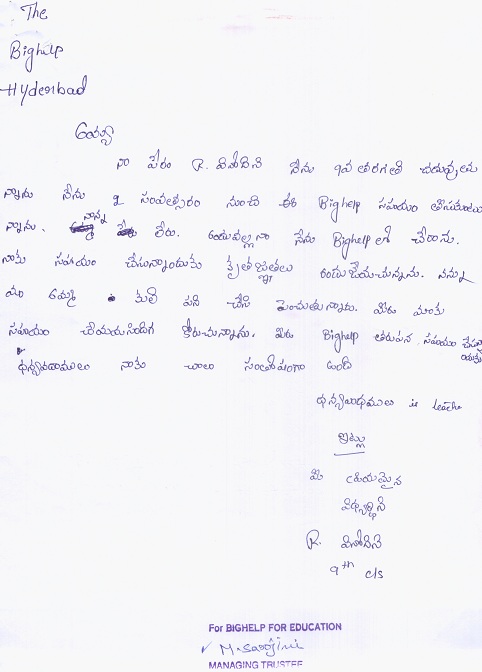 The
Bighelp
Hyderbad
అయ్యా
నా పేరు R. వినోదిని నేను 9వ తరగతి చదువుతు
న్నాను నేను 2 సంవత్సరం నుంచి ఈ Bighelp సహాయం తీసుకుంటు
న్నాను. నాన్న లేరు. అందువల్ల నా నేను Bighelp లో చేరాను.
నాకు సహాయం చేస్తున్నందుకు కృతజ్ఞతలు నన్ను
మా అమ్మ కూలి పని చేసి పెంచుతున్నారు. మీరు మాకు
సహాయం కోరుచున్నాను. మీరు Bighelp తరుపున సహాయం
ధన్యవాదములు నాకు చాలా సంతోషంగా ఉంది
ధన్యవాధములు is teache
ఇట్లు
మీ ప్రియమైన
విద్యార్థిని
R. వినోదిని
9th c/s
For BIGHELP FOR EDUCATION
M. Sarojini
MANAGING TRUSTEE